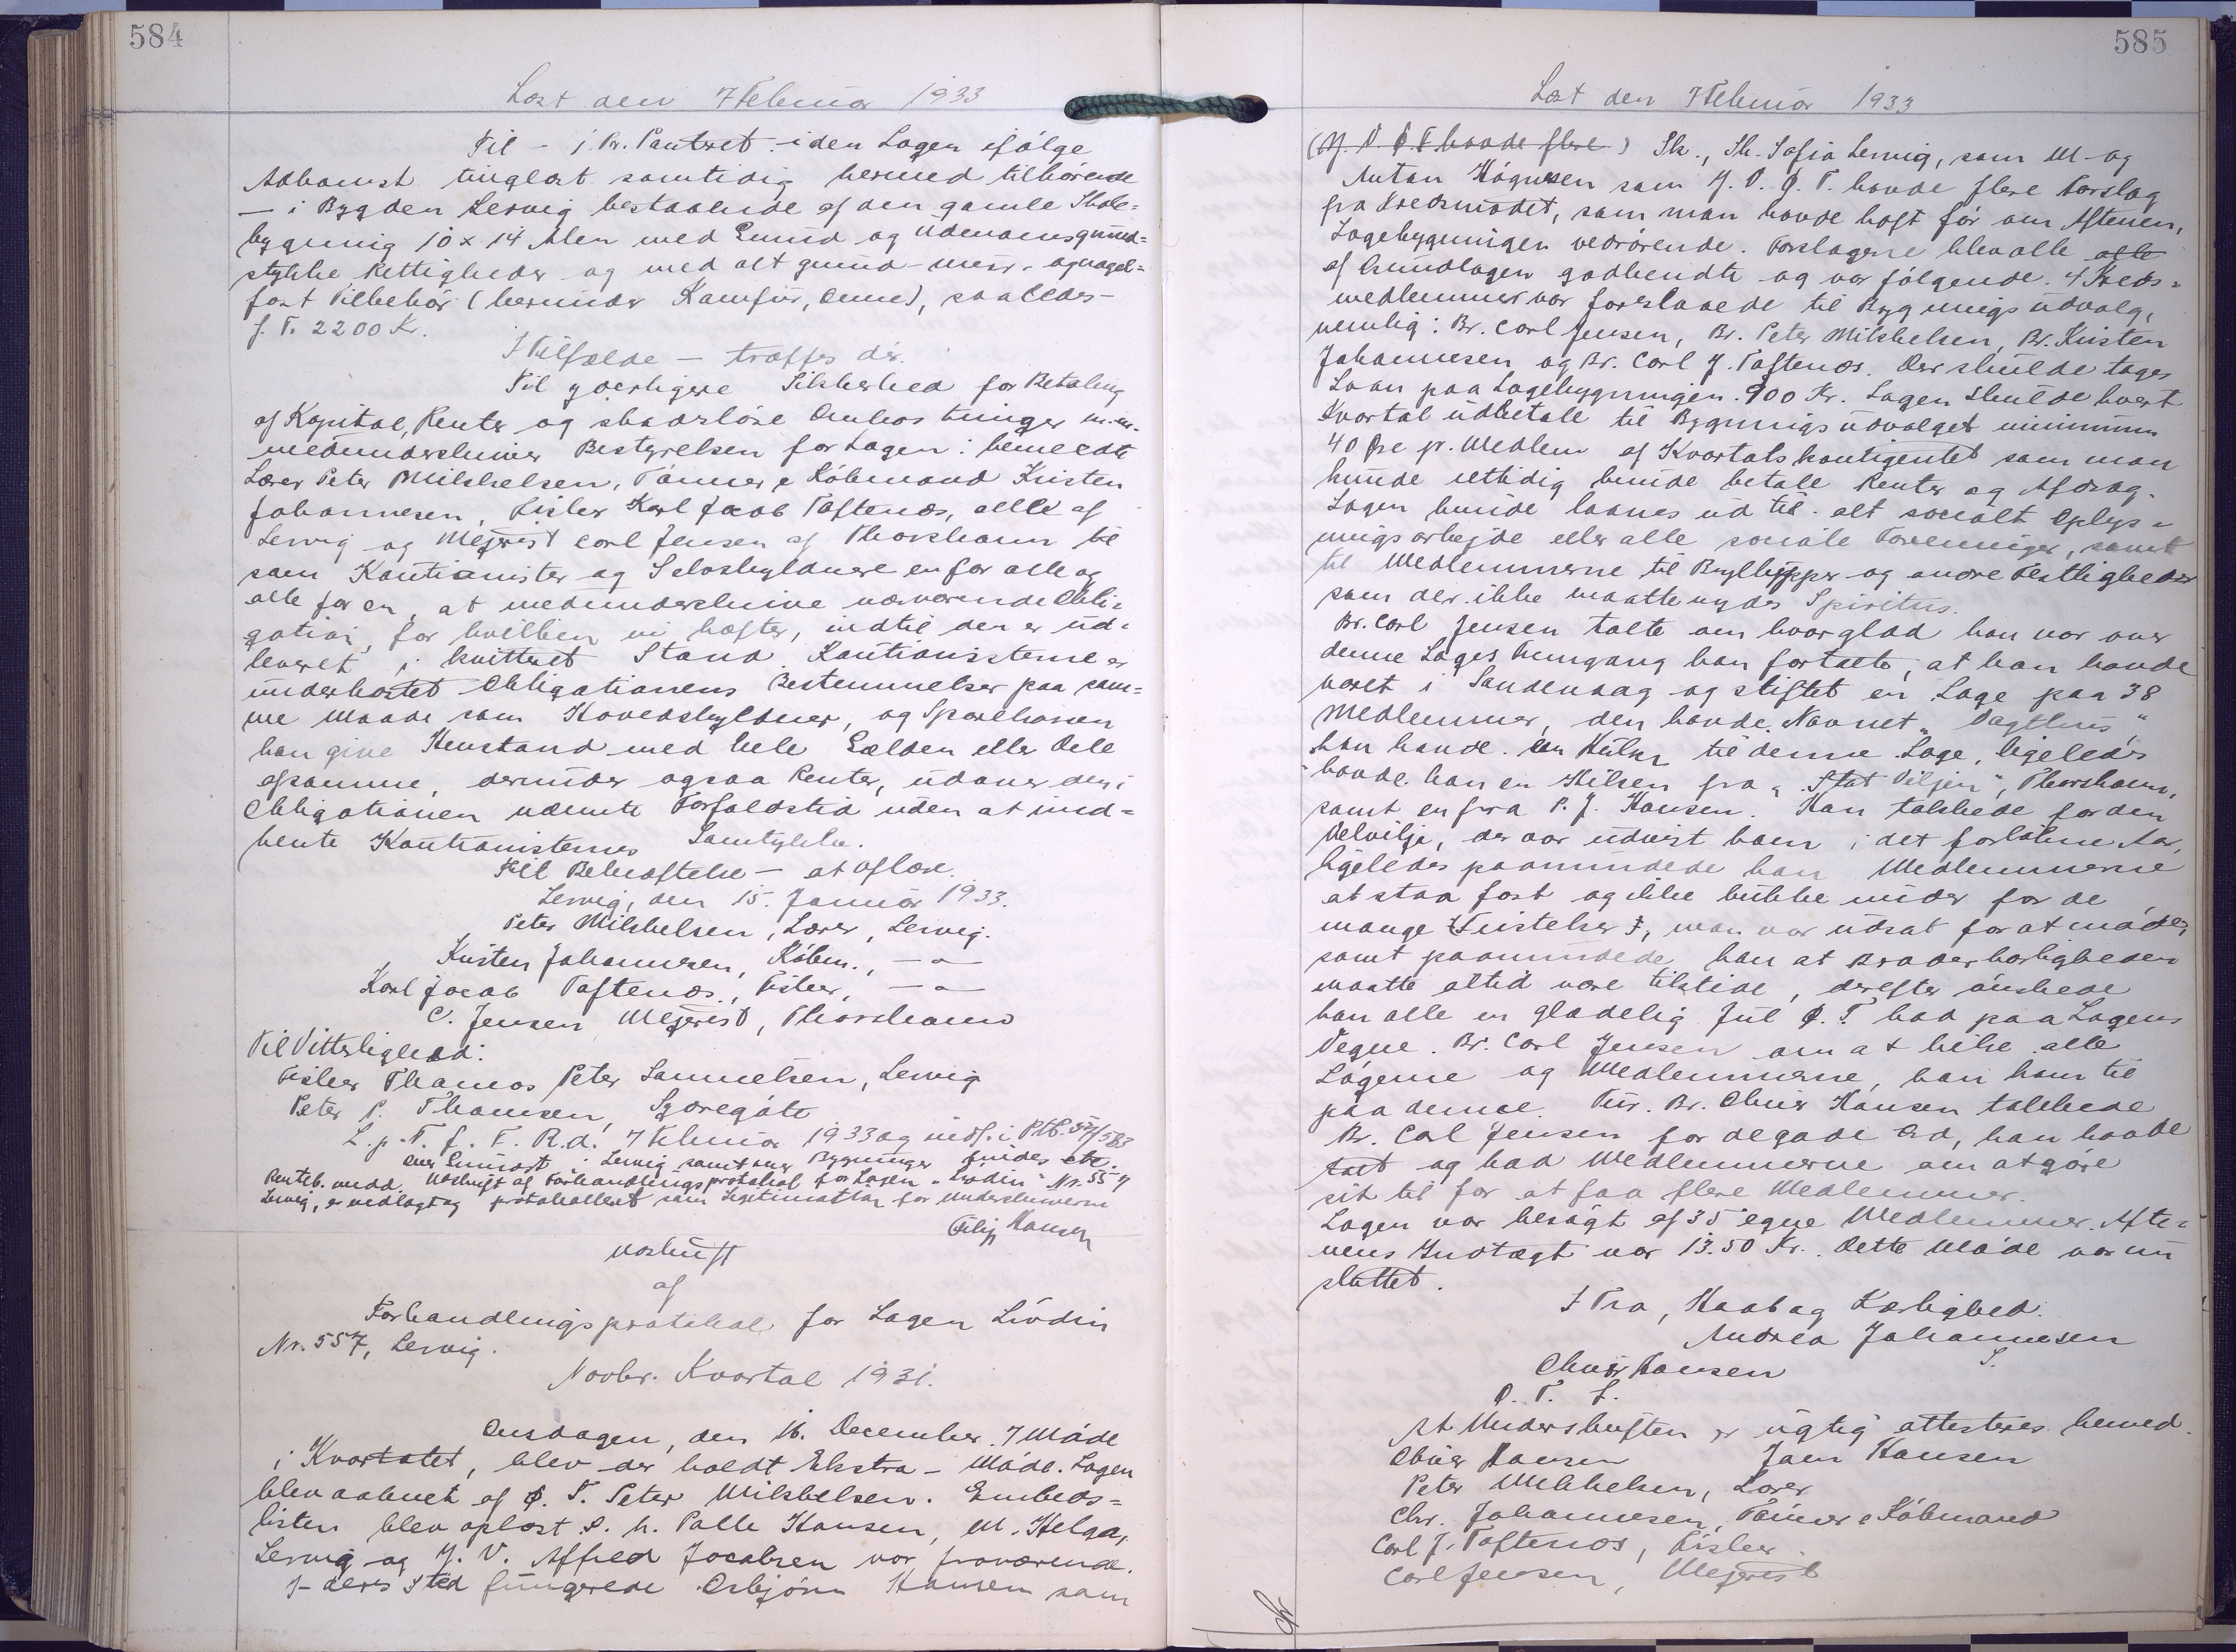 584
Læst den 7 Februar 1933
Til - 1. Pr. Panteret - i den Logen ifølge
Adkomst tinglæst samtidig hermed tilhørende
— i Bygden Lervig bestaaende af den gamle Skole=
bygning 10 x 14 Alen med Grund og Udenomsgrund=
stykke Rettigheder og med alt grund- mur- og nagel=
fast Tilbehør (herunder Komfur, Ovne), saaledes -
f. T. 2200 Kr.
I Tilfælde — træffes der.
Til yderligere Sikkerhed for Betaling
af Kapital, Renter og skadesløse Omkostninger m.m.
medunderskriver Bestyrelsen for Logen: bemeldte
Lærer Peter Mikkelsen, Tømrer & Købmand Kristen
Johannesen, Fisker Karl Jacob Toftenæs, alle af
Lervig og Mejerist Carl Jensen af Thorshavn til
som Kautionister og Selvskyldnere en for alle og
alle for en, at medunderskrive nærværende Obli=
gation, for hvilken vi hæfter, indtil den er ud=
leveret i kvitteret Stand. Kautionisterne er
underkastet Obligationens Bestemmelser paa sam=
me Maade som Hovedskyldner, og Sparekassen
kan give Henstand med hele Gælden eller Dele
af samme, derunder ogsaa Renter, udover den i
Obligationen nævnte Forfaldstid uden at ind=
hente Kautionisternes Samtykke.
Til Bekræftelse — at aflæse.
Lervig, den 15. Januar 1933.
Peter Mikkelsen, Lærer, Lervig.
Kristen Johannesen, Købm., — " —
Karl Jacob Toftenæs, Fisker, — " —
C. Jensen Mejerist, Thorshavn
Til Vitterlighed:
Fisker Thomas Peter Samuelsen, Lervig
Peter P. Thomsen, Syðregøte
L. p. T. f. F. R. d. 7 Februar 1933 og indf. i Ptb. S. 583
over Grunden i Lervig samt over Bygninger findes etc.
Panteb. medd. Udskrift af Forhandlingsprotokol for Logen "Lívdin" Nr. 557
Lervig, er vedlagt og protokolleret som Legitimation for Underskriverne
Filip Hansen
Udskrift
af
Forhandlingsprotokol for Logen Lívdin
Nr. 557, Lervig.
Novbr. Kvartal 1931.
Onsdagen, den 16. December. 7 Møde
i Kvartalet, blev der holdt Ekstra- Møde. Logen
blev aabnet af O. T. Peter Mikkelsen. Embeds=
listen blev oplæst. S. h. Palle Hansen, M. Helga,
Lervig og Y. V. Alfred Jacobsen var fraværende.
I deres Sted fungerede Esbjørn Hansen som
585
Læst den 7 Februar 1933
(Y. V. O T. havde flere) Sk., Sk. Sofia Lervig, som M- og
Anton Høgnesen som Y. V. O. T. havde flere Forslag
fra Kredsmødet, som man havde haft før om Aftenen,
Logebygningen vedrørende. Forslagene blev alle alle
af Grundlogen godkendte og var følgende. 4 Kreds=
medlemmer var foreslaaede til Bygningsudvalg,
nemlig: Br. Carl Jensen, Br. Peter Mikkelsen, Br. Kristen
Johannesen og Br. Carl J. Toftenæs. Der skulde tages
Laan paa Logebygningen. 900 Kr. Logen skulde hvert
Kvartal udbetale til Bygningsudvalget minimum
40 Øre pr. Medlem af Kvartalskontigentet som man
kunde rettidig kunde betale Renter og Afdrag.
Logen kunde laanes ud til alt socialt Oplys=
ningsarbejde eller alle sociale Foreninger, samt
til Medlemmerne til Bryllupper og andre Festligheder
som der ikke maatte nydes Spiritus.
Br. Carl Jensen talte om hvor glad han var over
denne Loges Fremgang han fortalte, at han havde
været i Sandevaag og stiftet en Loge paa 38
Medlemmer, den havde Navnet "Dagtlus"
han havde en Hilsen til denne Loge, ligeledes
havde han en Hilsen fra "Fast Viljen", Thorshavn,
samt en fra P. J. Hansen. Han takkede for den
Velvilje, der var udvist ham i det forløbne Aar,
ligeledes paamindede han Medlemmerne
at staa fast og ikke bukke under for de
mange Fristelser, man var udsat for at møde,
samt paamindede han at Broderkærligheden
maatte altid være tilstede, derefter ønskede
han alle en glædelig Jul O. T. bad paa Logens
Vegne. Br. Carl Jensen om at hilse alle
Logerne og Medlemmerne, han kom til
paa denne Tur. Br. Oliver Hansen takkede
Br. Carl Jensen for de gode Ord, han havde
talt og bad Medlemmerne om at gøre
sit til for at faa flere Medlemmer.
Logen var besøgt af 35 egne Medlemmer. Afte=
nens Indtægt var 13.50 Kr. Dette Møde var nu
sluttet.
I Tro, Haab og Kærlighed.
Andrea Johannesen
S.
Oliver Hansen
O. T. S.
At Underskriften er rigtig attesteres hermed.
Oliver Hansen Jens Hansen
Peter Mikkelsen, Lærer
Chr. Johannesen, Tømrer & Købmand
Carl J. Toftenæs, Fisker.
Carl Jensen, Mejerist